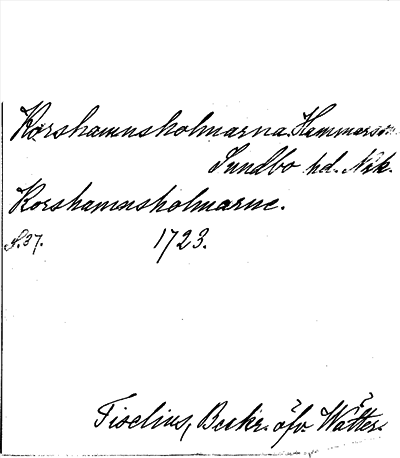 Korshamnsholmarna Hammars sn.
Sundbo hd. Nrk.
Korshamnsholmarne.
S. 37. 1723.
Tiselius, Beskr. öfv. Wätter.